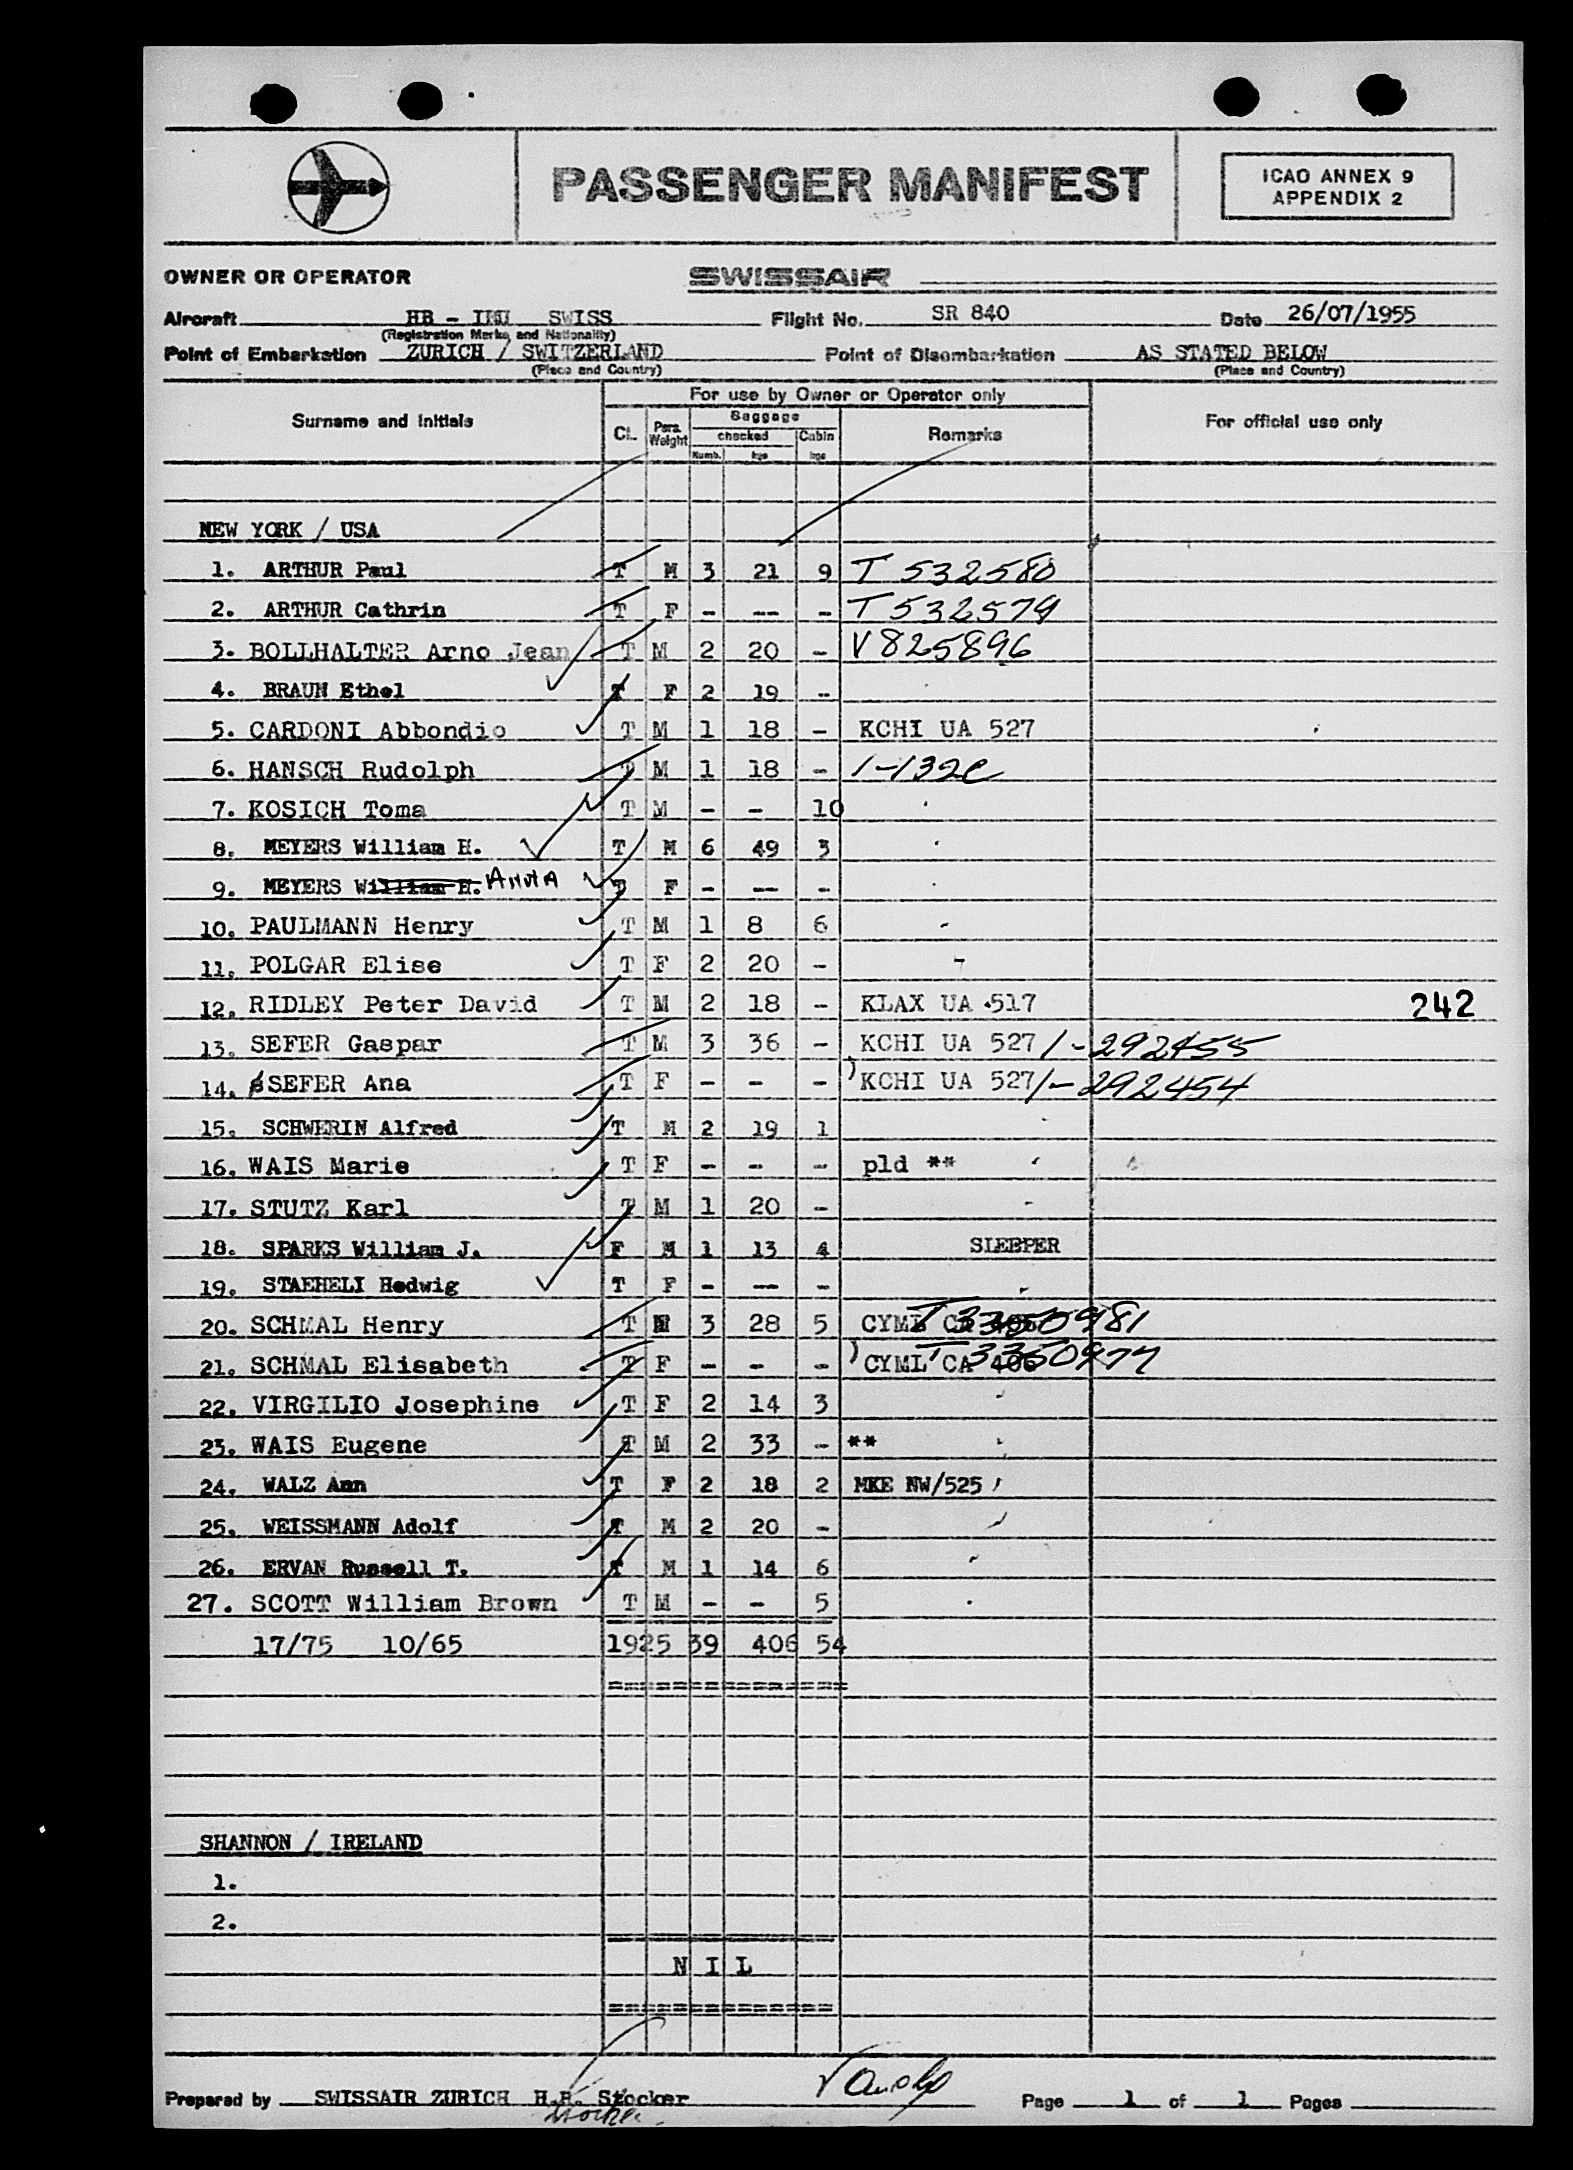 PASSENGER MANIFEST
ICAO ANNEX 9
APPENDIX 2
OWNER OR OPERATOR SWISSAIR
Aircraft HB - IMU SWISS Flight No. SR 840 Date 26/07/1955
(Registration Marks and Nationality)
Point of Embarkation ZURICH / SWITZERLAND Point of Disembarkation AS STATED BELOW
(Place and Country) (Place and Country)
For use by Owner or Operator only
Surname and initials Cl. Pers. Weight Baggage checked Numb. kgs Cabin kgs Remarks For official use only
NEW YORK / USA
1. ARTHUR Paul T M 3 21 9 T 532580
2. ARTHUR Cathrin T F - -- - T 532579
3. BOLLHALTER Arno Jean T M 2 20 - V 825896
4. BRAUN Ethel T F 2 19 -
5. CARDONI Abbondio T M 1 18 - KCHI UA 527
6. HANSCH Rudolph T M 1 18 - 1-132C
7. KOSICH Toma T M - - 10
8. MEYERS William H. T M 6 49 3
9. MEYERS William H. ANITA T F - -- -
10. PAULMANN Henry T M 1 8 6
11. POLGAR Elise T F 2 20 -
12. RIDLEY Peter David T M 2 18 - KLAX UA 517 242
13. SEFER Gaspar T M 3 36 - KCHI UA 527 1-292455
14. SEFER Ana T F - - - ) KCHI UA 527 1-292454
15. SCHWERIN Alfred T M 2 19 1
16. WAIS Marie T F - - - pld **
17. STUTZ Karl T M 1 20 -
18. SPARKS William J. F M 1 13 4 SLEEPER
19. STAEHELI Hedwig T F - -- -
20. SCHMAL Henry T M 3 28 5 CYML CA 406 T 3350981
21. SCHMAL Elisabeth T F - - - ) CYML CA 406 T 3350977
22. VIRGILIO Josephine T F 2 14 3
23. WAIS Eugene T M 2 33 - **
24. WALZ Ann T F 2 18 2 MKE NW/525
25. WEISSMANN Adolf T M 2 20 -
26. ERVAN Russell T. T M 1 14 6
27. SCOTT William Brown T M - - 5
17/75 10/65 1925 39 406 54
===============
SHANNON / IRELAND
1.
2.
N I L
==============
Prepared by SWISSAIR ZURICH H.R. Stocker Page 1 of 1 Pages